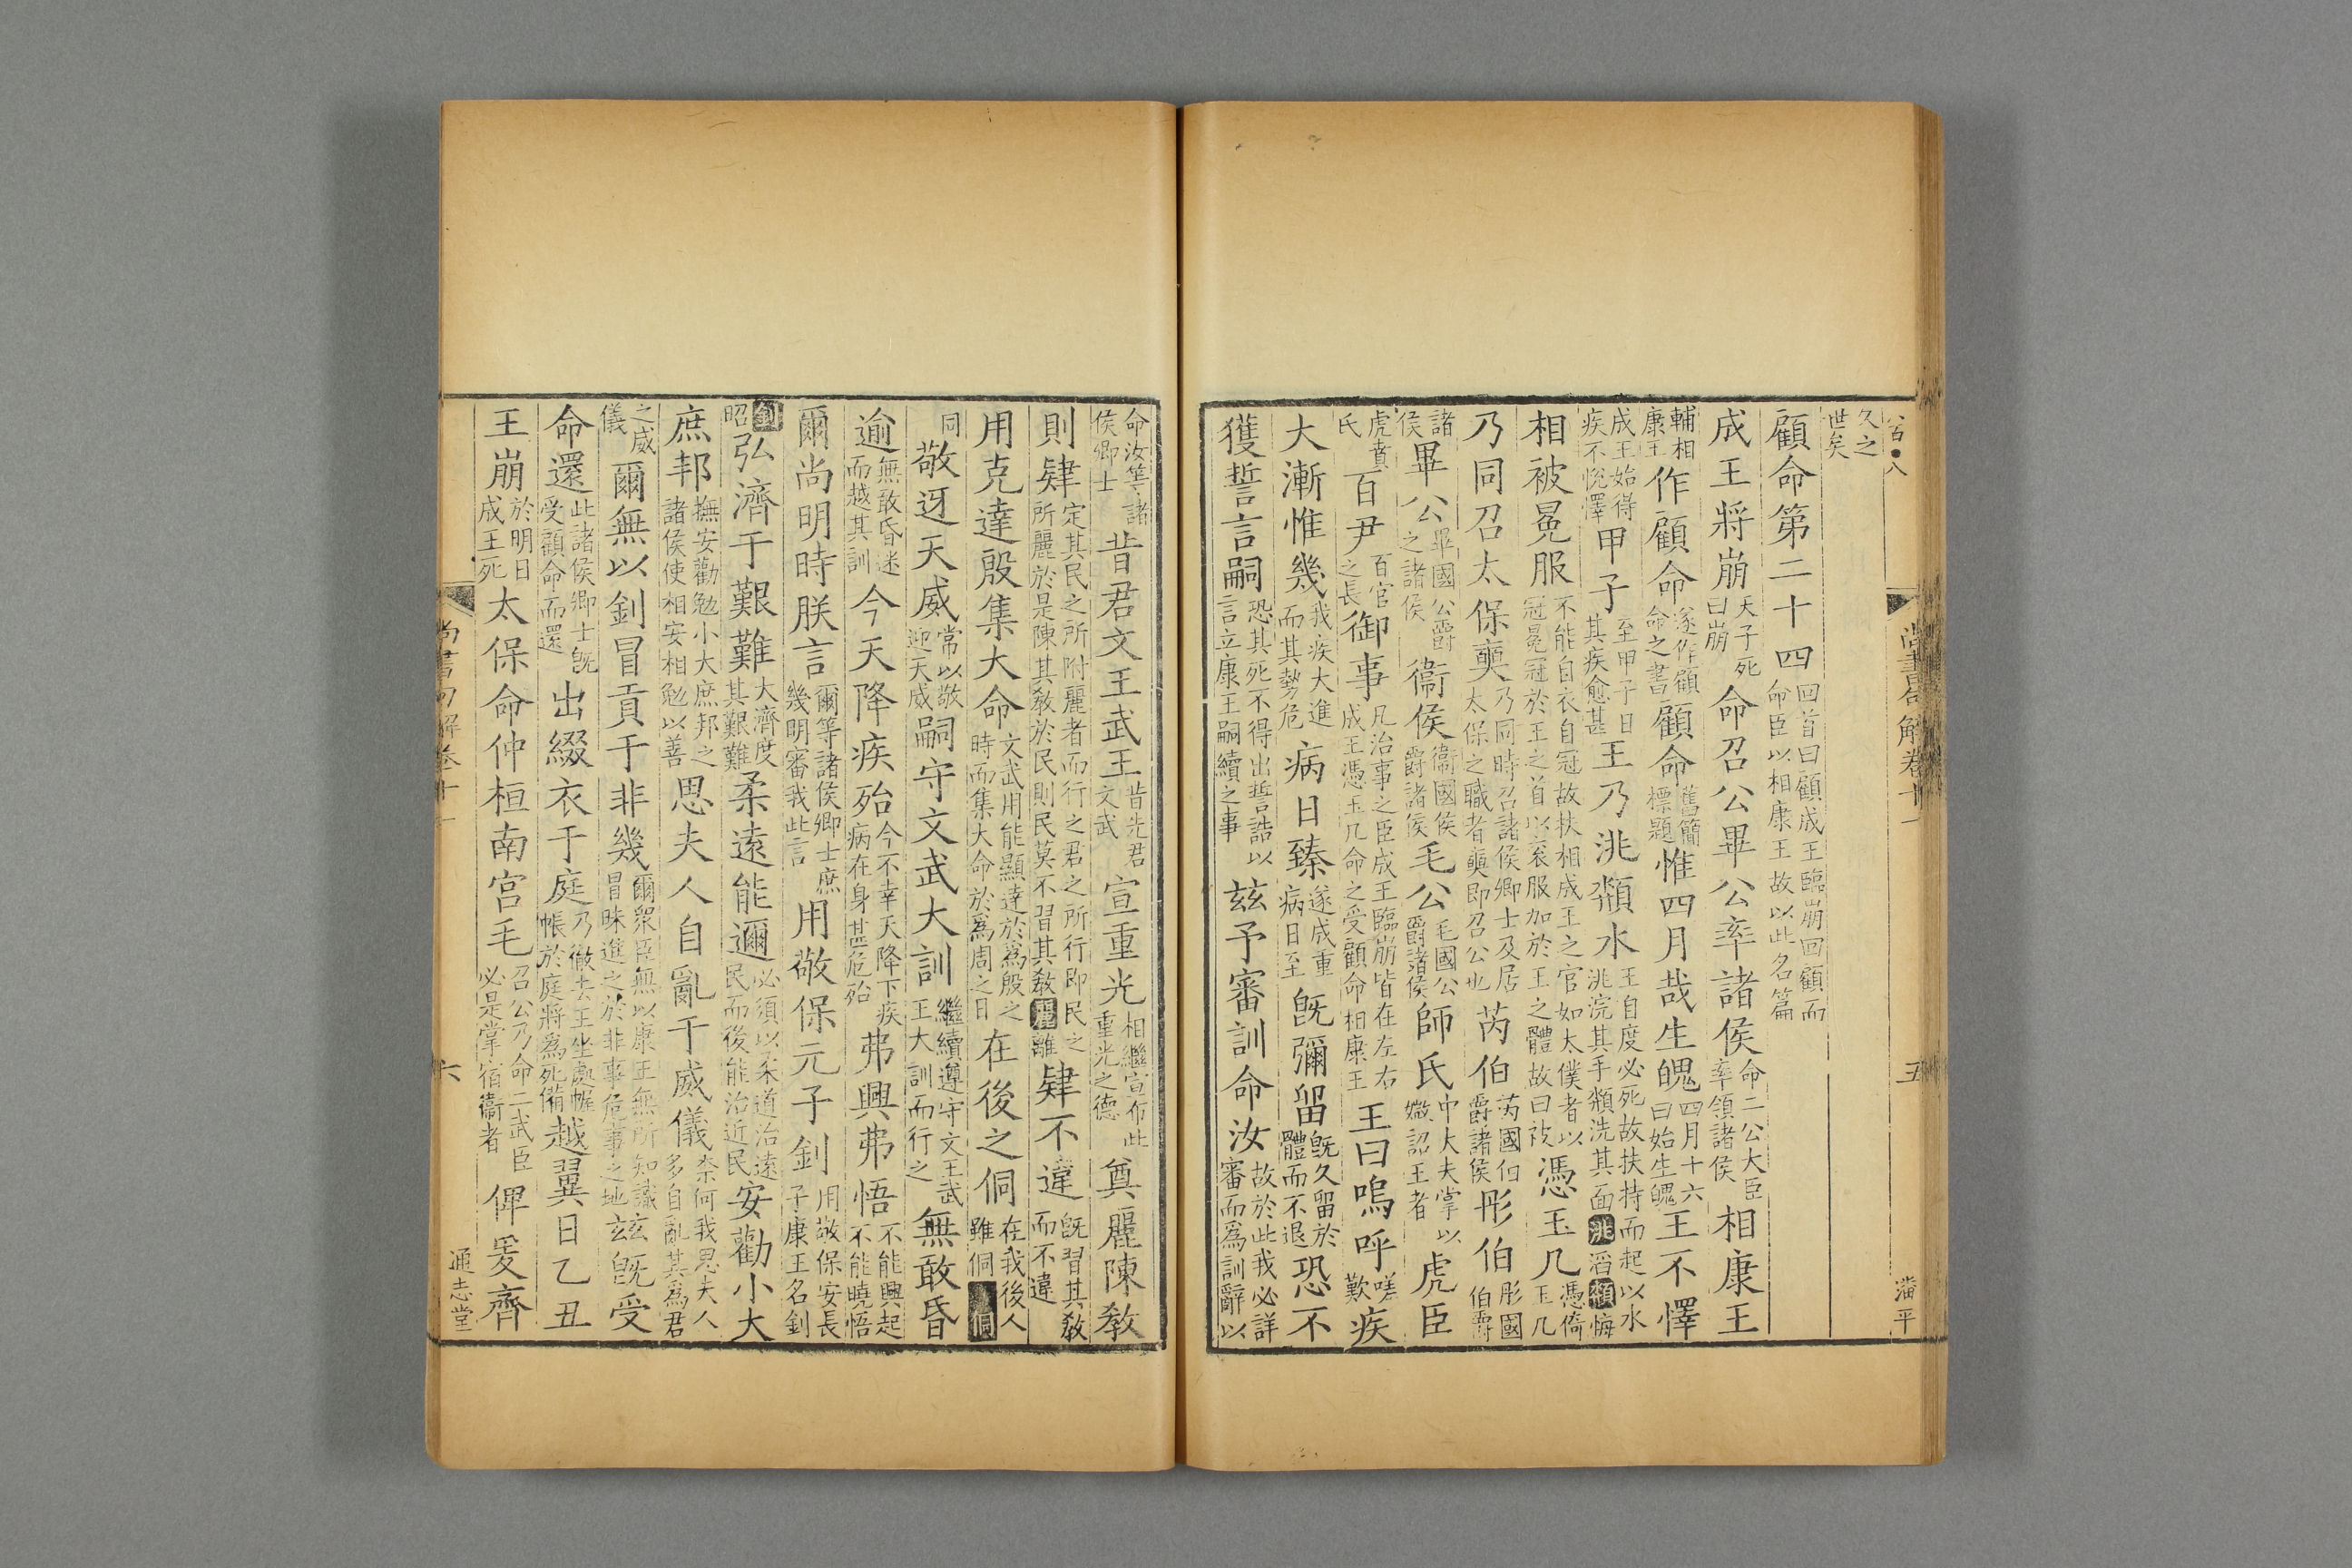 久之世矣
顧命第二十四回首曰顧成王臨崩回顧而命臣以相康王故以此名篇
成王將崩天子死曰崩命召公畢公率諸侯命二公大臣率領諸侯相康王
輔相康王作顧命遂作顧命之書顧命舊簡標題惟四月哉生魄四月十六曰始生魄王不懌
成王始得疾不悅懌甲子至甲子日其疾愈甚王乃洮頮水王自度必死故扶持而起以水洮浣其手頮洗其面洮滔頮悔
相被冕服不能自衣自冠故扶相成王之官如太僕者以冠冕冠於王之首以衮服加於王之體故曰被憑玉几憑倚玉几
乃同召太保奭乃同時召諸侯卿士及居太保之職者奭即召公也芮伯芮國伯爵諸侯彤伯彤國伯爵
諸侯畢公畢國公爵之諸侯衞侯衞國侯爵諸侯毛公毛國公爵諸侯師氏中大夫掌以媺詔王者虎臣
虎賁氏百尹百官之長御事凡治事之臣成王臨崩皆在左右成王憑玉几命之受顧命相康王王曰嗚呼嗟歎疾
大漸惟幾我疾大進而其勢危病日臻遂成重病日至旣彌留旣久留於體而不退恐不
獲誓言嗣恐其死不得出誓誥以言立康王嗣續之事玆予審訓命汝故於此我必詳審而爲訓辭以
尚書句解卷十一
五
潘平
命汝等諸侯卿士昔君文王武王昔先君文武宣重光相繼宣布此重光之德奠麗陳敎
則肄定其民之所附麗者而行之君之所行即民之所麗於是陳其敎於民則民莫不習其敎麗離肄不違旣習其敎而不違
用克達殷集大命文武用能顯達於爲殷之時而集大命於爲周之日在後之侗在我後人雖侗侗
同敬迓天威常以敬迎天威嗣守文武大訓繼續遵守文王武王大訓而行之無敢昏
逾無敢昏迷而越其訓今天降疾殆今不幸天降下疾病在身甚危殆弗興弗悟不能興起不能曉悟
爾尚明時朕言爾等諸侯卿士庶幾明審我此言用敬保元子釗用敬保安長子康王名釗
釗昭弘濟于艱難大濟度其艱難柔遠能邇必須以柔道治遠民而後能治近民安勸小大
庶邦撫安勸勉小大庶邦之諸侯使相安相勉以善思夫人自亂于威儀柰何我思夫人多自亂其爲君
之威儀爾無以釗冒貢于非幾爾衆臣無以康王無所知識冒昧進之於非事危事之地玆旣受
命還此諸侯卿士旣受顧命而還出綴衣于庭乃徹去王坐處幄帳於庭將爲死備越翼日乙丑
王崩於明日成王死太保命仲桓南宮毛召公乃命二武臣必是掌宿衞者俾爰齊
尚書句解卷十一
六
通志堂